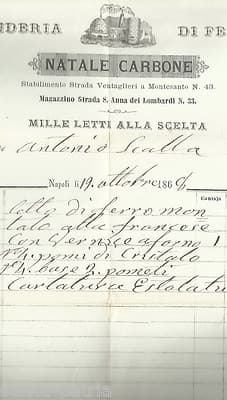 NDERIA DI FE
NATALE CARBONE
Stabilimento Strada Ventaglieri a Montesanto N. 43.
Magazzino Strada S. Anna dei Lombardi N. 33.
MILLE LETTI ALLA SCELTA
Antonio Scalla
Napoli li 19 ottobre 1868
di ferro mon
tato alla francese
Con Vernice a forno 1
pomi di Cristalo
base 2 pomeli